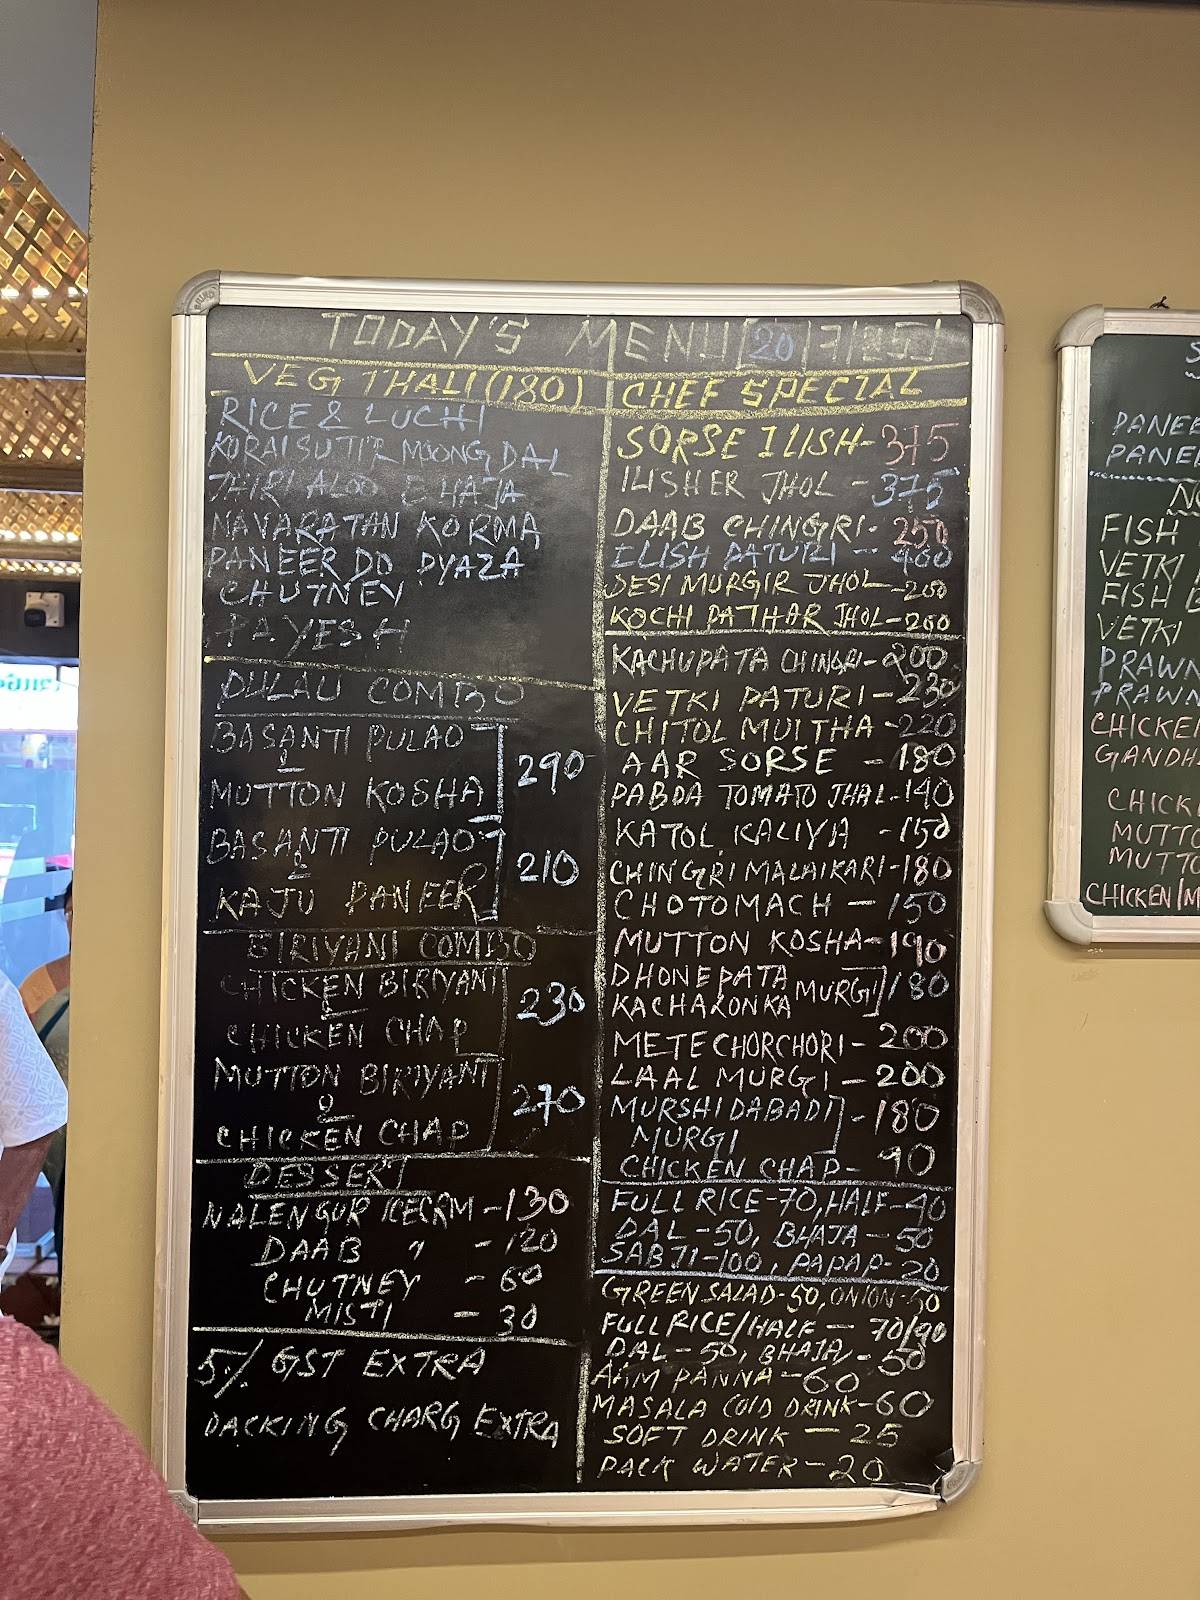 TODAY'S MENU 20/7/25
VEG THALI (180)
RICE & LUCHI
KORAISUTIR MOONG DAL
JHIRI ALOO BHAJA
NAVARATAN KORMA
PANEER DO PYAZA
CHUTNEY
PAYESH
PULAU COMBO
BASANTI PULAO
&
MUTTON KOSHA
290
BASANTI PULAO
&
KAJU PANEER
210
BIRIYANI COMBO
CHICKEN BIRIYANI
&
CHICKEN CHAP
230
MUTTON BIRIYANI
&
CHICKEN CHAP
270
DESSERT
NALENGUR ICECRM - 130
DAAB " - 120
CHUTNEY - 60
MISTI - 30
5% GST EXTRA
PACKING CHARG EXTRA
CHEF SPECIAL
SORSE ILISH - 375
ILISHER JHOL - 375
DAAB CHINGRI - 250
ILISH PATURI - 400
DESI MURGIR JHOL - 260
KOCHI PATHAR JHOL - 260
KACHUPATA CHINGRI - 200
VETKI PATURI - 230
CHITOL MUITHA - 220
AAR SORSE - 180
PABDA TOMATO JHAL - 140
KATOL KALIYA - 150
CHINGRI MALAIKARI - 180
CHOTOMACH - 150
MUTTON KOSHA - 190
DHONEPATA
KACHALONKA MURGI] 180
METECHORCHORI - 200
LAAL MURGI - 200
MURSHIDABADI
MURGI ] - 180
CHICKEN CHAP - 90
FULL RICE - 70, HALF - 40
DAL - 50, BHAJA - 50
SABJI - 100, PAPAP - 20
GREEN SALAD - 50, ONION - 50
FULL RICE/HALF - 70/90
DAL - 50, BHAJA - 50
AAM PANNA - 60
MASALA COLD DRINK - 60
SOFT DRINK - 25
PACK WATER - 20
PANEE
PANEE
FISH
VETKI
FISH
VETKI
PRAWN
PRAWN
CHICKEN
GANDH
CHICK
MUTTO
MUTTO
CHICKEN/M